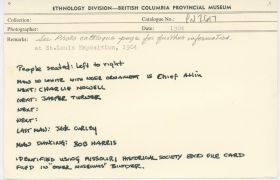 ETHNOLOGY DIVISION—BRITISH COLUMBIA PROVINCIAL MUSEUM
Catalogue No.: PN 2617
Photographer: Date: 1904
Remarks: See Photo catalogue page for further information.
at St. Louis Exposition, 1904
People seated: left to right
MAN IN WHITE WITH NOSE ORNAMENT IS Chief Atlin
NEXT: CHARLIE NOWELL
NEXT: JASPER TURNER
NEXT:
NEXT:
LAST MAN: JACK CURLEY
MAN DANCING: BOB HARRIS
IDENTIFIED USING MISSOURI HISTORICAL SOCIETY INFO FILE CARD
FILED IN "OTHER MUSEUMS" BINDER.